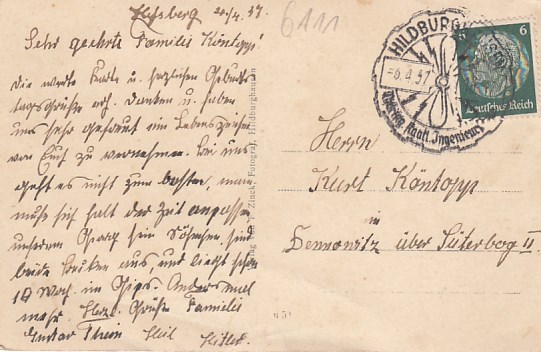 Sehr geehrte Familie Köntopp!
Die werte Karte u. herzlichen Geburts
tagsgrüße erh. Danken u. haben
uns sehr gefreut ein Lebenszeichen
von Euch zu vernehmen. Bei uns
geht es nicht zum besten, man
muß sich halt der Zeit anpassen
unserem Georg sein Söhnchen sind
beide aus, und liegt schon
10 Woch. im Gips. Anders mal
mehr Herzl. Grüße Familie
Gustav Thein Heil Hitler.
6111
HILDBURGH
-6.4.37
Ingenieurs
6
Deutsches Reich
Herrn
Kurt Köntopp
in
Dennewitz über Jüterbog II
Zinck, Fotograf, Hildburghausen